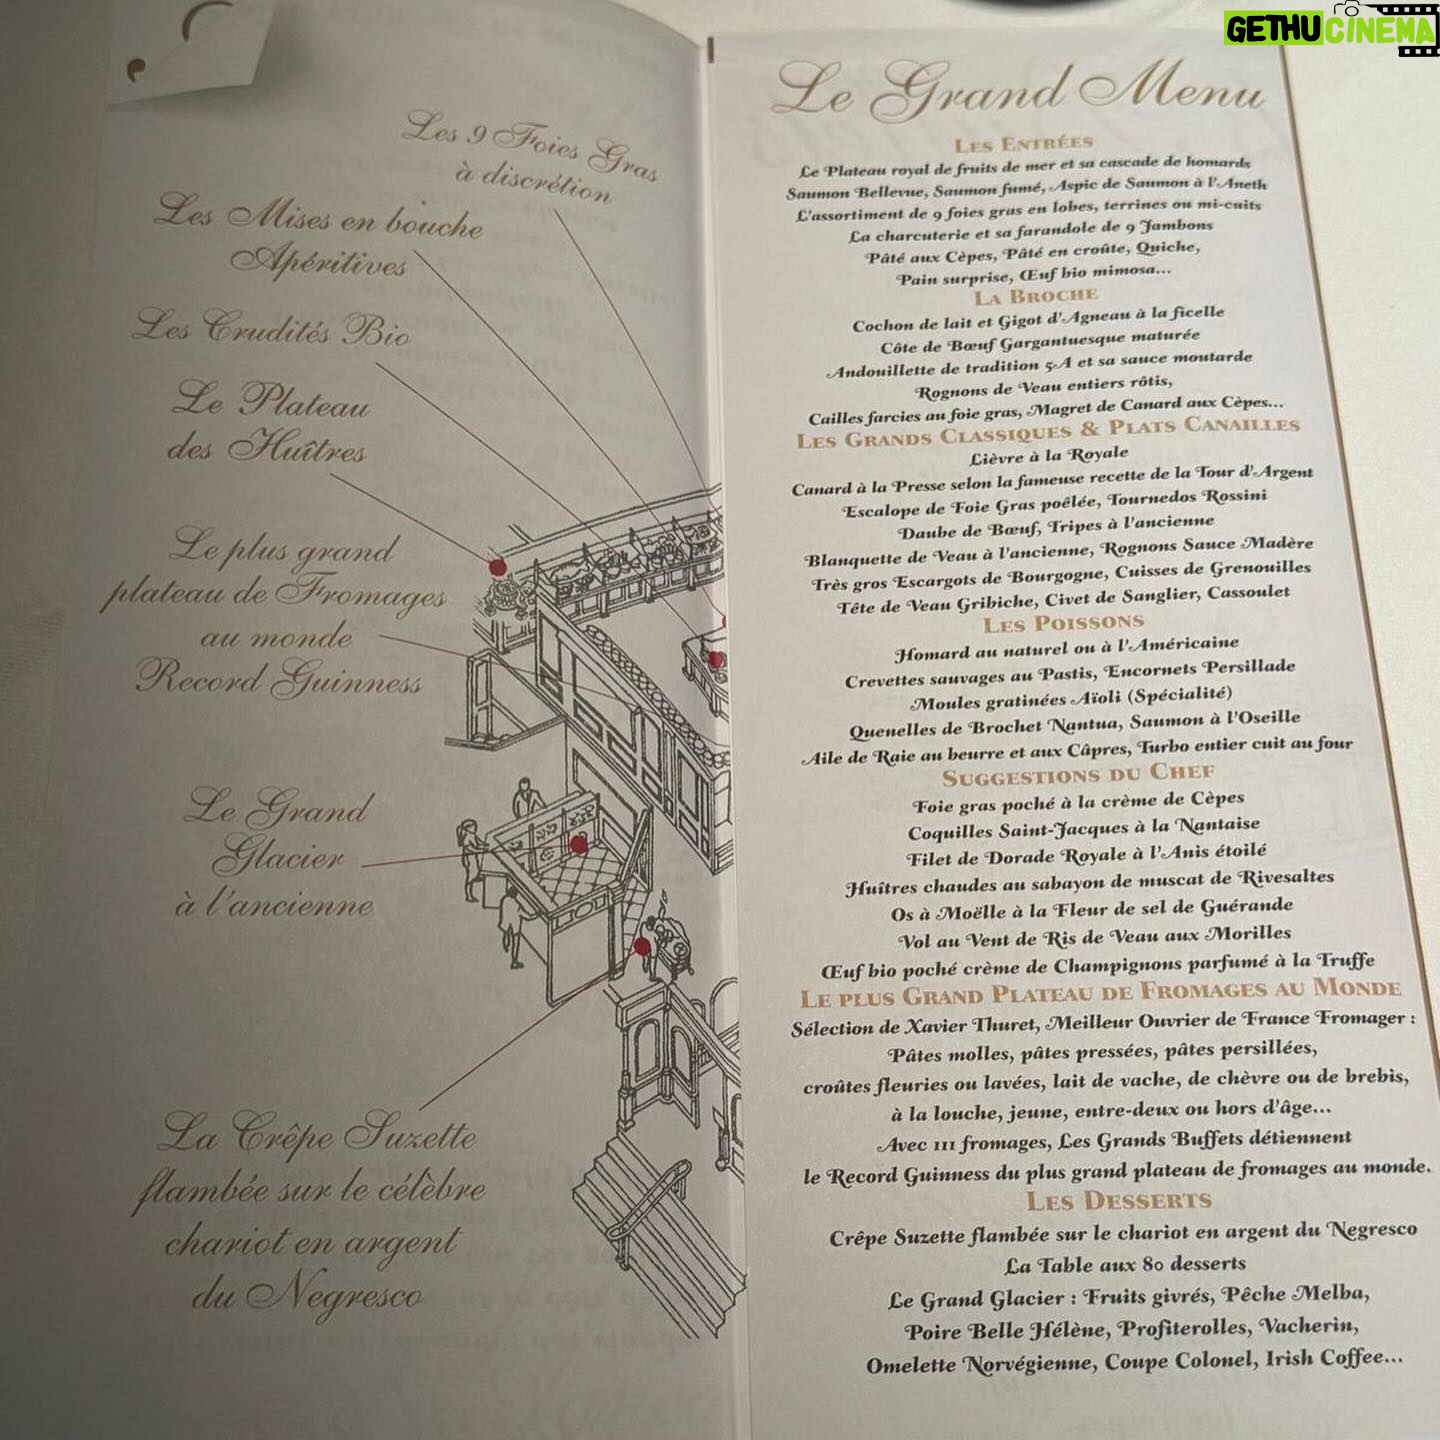 GETHUCINEMA
Les 9 Foies Gras
à discrétion
Les Mises en bouche
Apéritives
Les Crudités Bio
Le Plateau
des Huîtres
Le plus grand
plateau de Fromages
au monde
Record Guinness
Le Grand
Glacier
à l'ancienne
La Crêpe Suzette
flambée sur le célèbre
chariot en argent
du Negresco
Le Grand Menu
Les Entrées
Le Plateau royal de fruits de mer et sa cascade de homards
Saumon Bellevue, Saumon fumé, Aspic de Saumon à l'Aneth
L'assortiment de 9 foies gras en lobes, terrines ou mi-cuits
La charcuterie et sa farandole de 9 Jambons
Pâté aux Cèpes, Pâté en croûte, Quiche,
Pain surprise, Œuf bio mimosa...
La Broche
Cochon de lait et Gigot d'Agneau à la ficelle
Côte de Bœuf Gargantuesque maturée
Andouillette de tradition 5A et sa sauce moutarde
Rognons de Veau entiers rôtis,
Cailles farcies au foie gras, Magret de Canard aux Cèpes...
Les Grands Classiques & Plats Canailles
Lièvre à la Royale
Canard à la Presse selon la fameuse recette de la Tour d'Argent
Escalope de Foie Gras poêlée, Tournedos Rossini
Daube de Bœuf, Tripes à l'ancienne
Blanquette de Veau à l'ancienne, Rognons Sauce Madère
Très gros Escargots de Bourgogne, Cuisses de Grenouilles
Tête de Veau Gribiche, Civet de Sanglier, Cassoulet
Les Poissons
Homard au naturel ou à l'Américaine
Crevettes sauvages au Pastis, Encornets Persillade
Moules gratinées Aïoli (Spécialité)
Quenelles de Brochet Nantua, Saumon à l'Oseille
Aile de Raie au beurre et aux Câpres, Turbo entier cuit au four
Suggestions du Chef
Foie gras poché à la crème de Cèpes
Coquilles Saint-Jacques à la Nantaise
Filet de Dorade Royale à l'Anis étoilé
Huîtres chaudes au sabayon de muscat de Rivesaltes
Os à Moëlle à la Fleur de sel de Guérande
Vol au Vent de Ris de Veau aux Morilles
Œuf bio poché crème de Champignons parfumé à la Truffe
Le plus Grand Plateau de Fromages au Monde
Sélection de Xavier Thuret, Meilleur Ouvrier de France Fromager :
Pâtes molles, pâtes pressées, pâtes persillées,
croûtes fleuries ou lavées, lait de vache, de chèvre ou de brebis,
à la louche, jeune, entre-deux ou hors d'âge...
Avec 111 fromages, Les Grands Buffets détiennent
le Record Guinness du plus grand plateau de fromages au monde.
Les Desserts
Crêpe Suzette flambée sur le chariot en argent du Negresco
La Table aux 80 desserts
Le Grand Glacier : Fruits givrés, Pêche Melba,
Poire Belle Hélène, Profiterolles, Vacherin,
Omelette Norvégienne, Coupe Colonel, Irish Coffee...